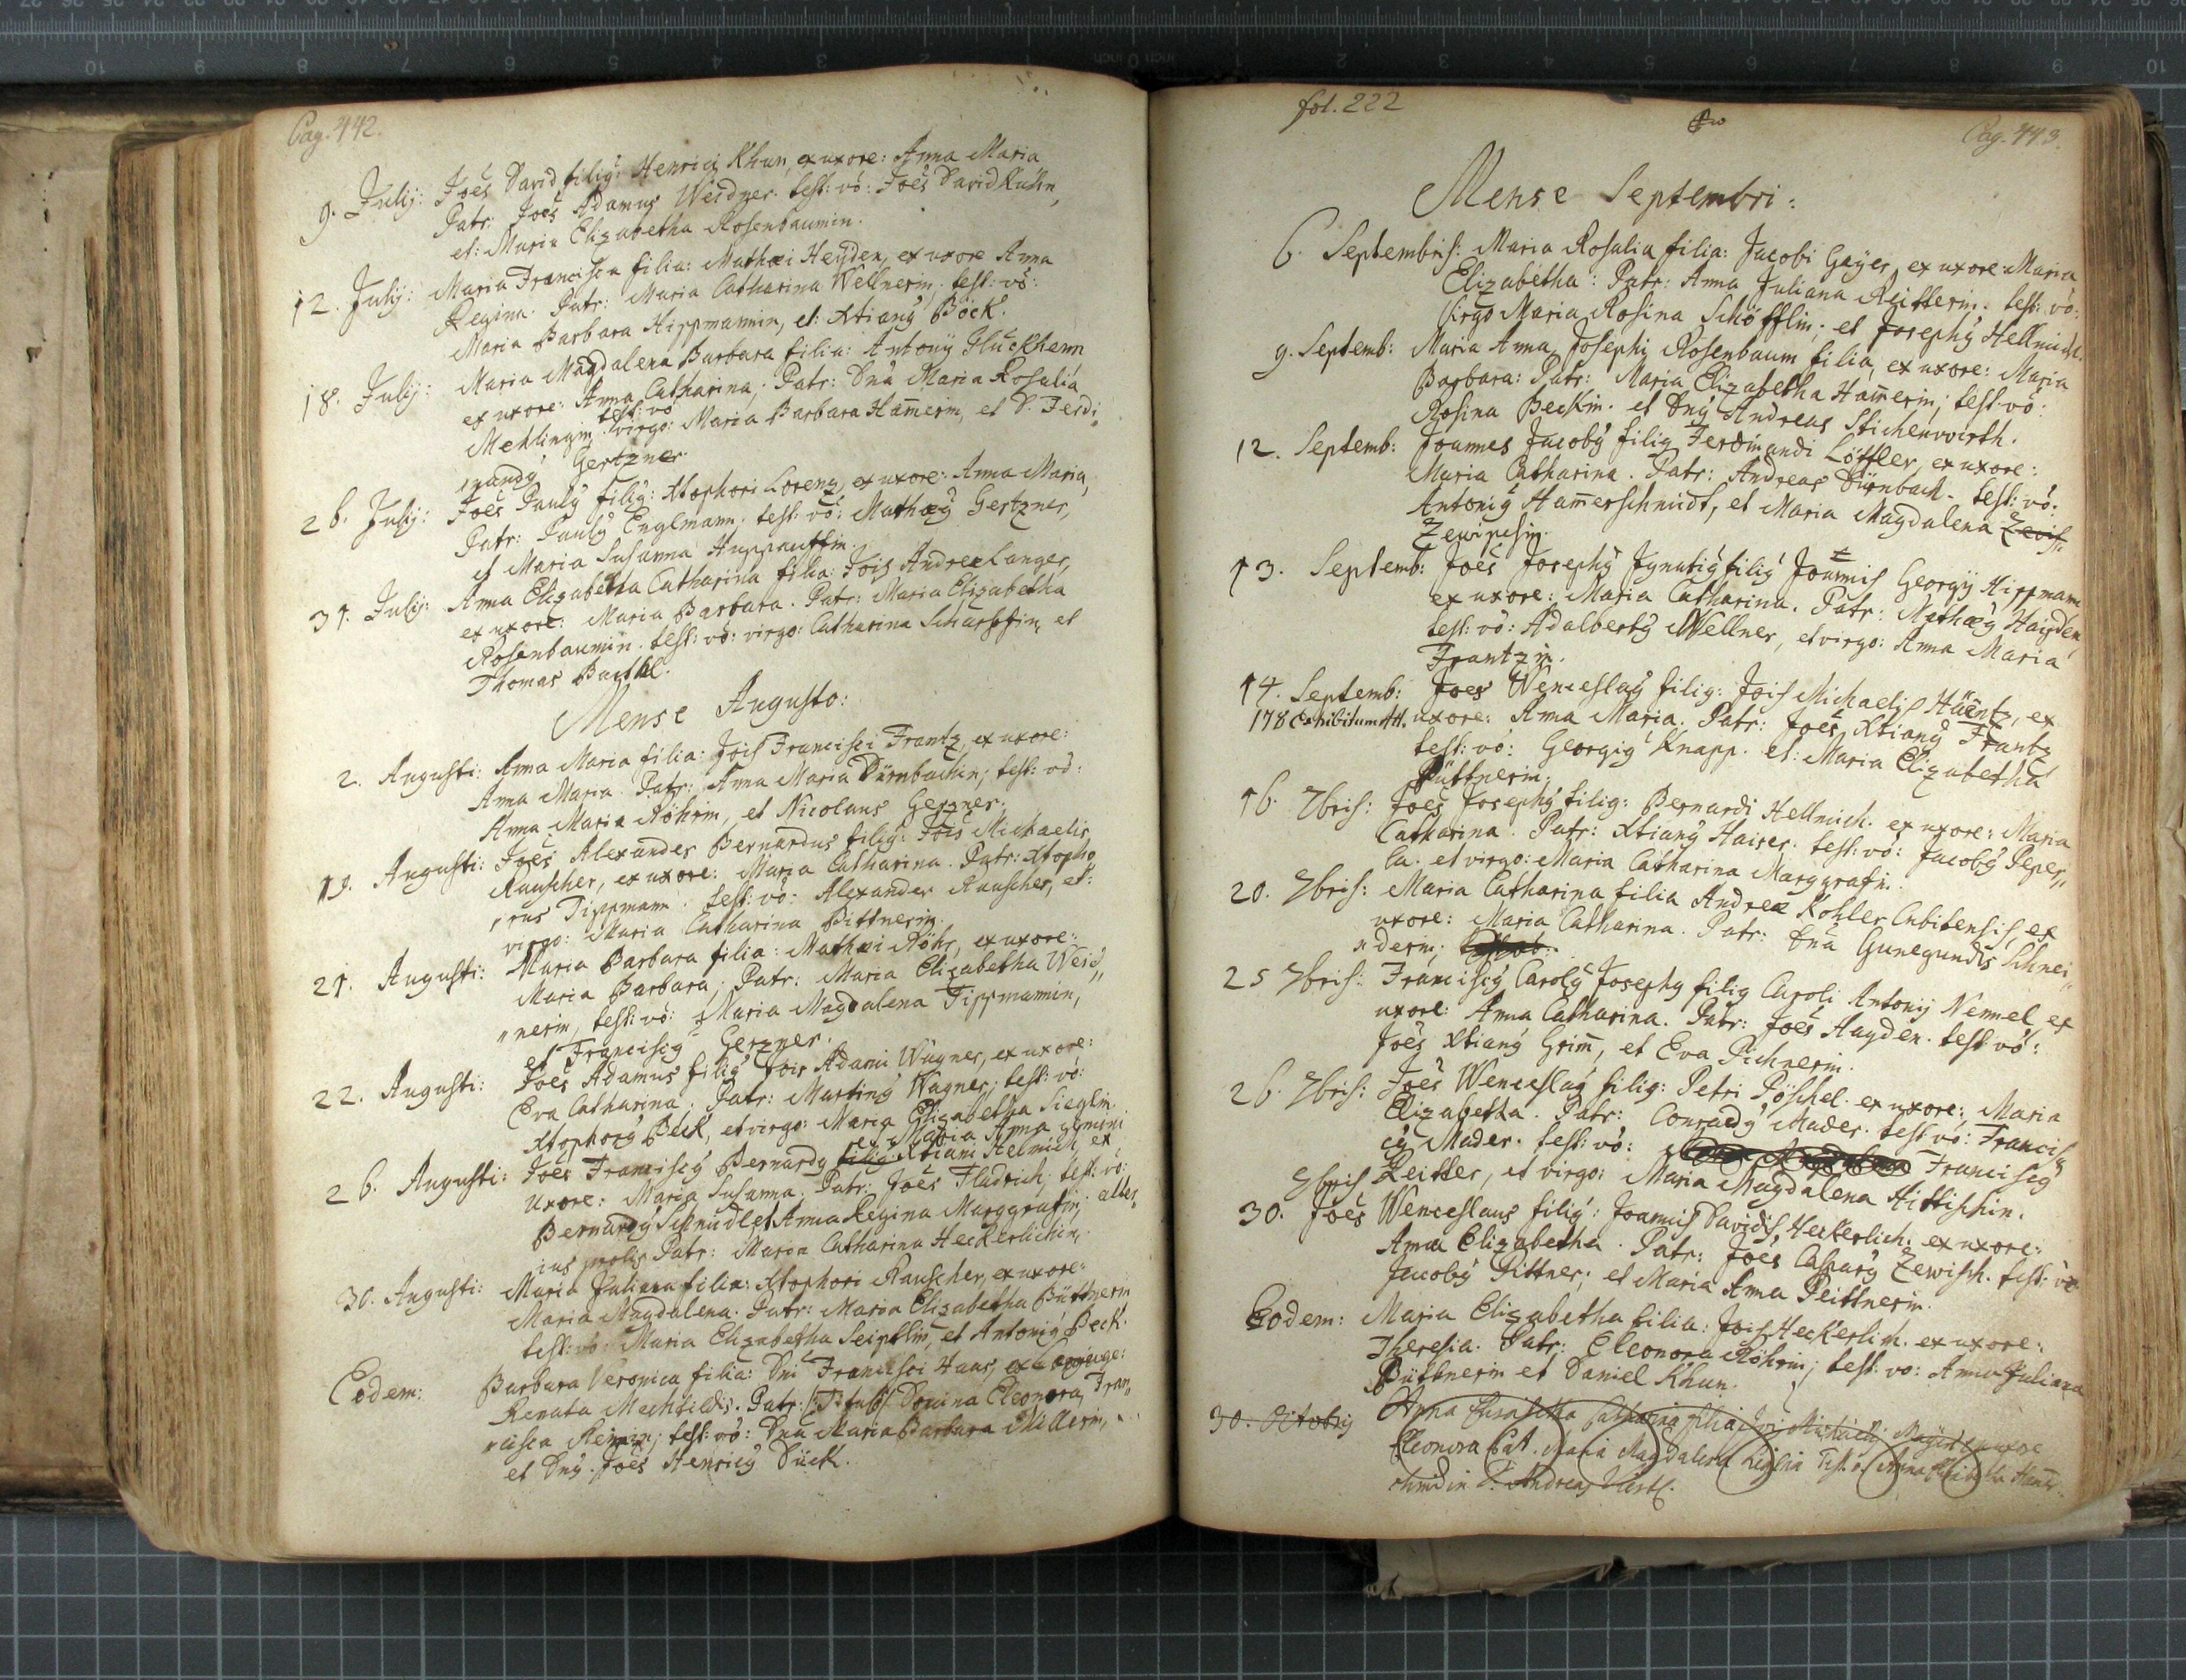 Pag. 442.
9. Julij: Joês David filiq̃: Henrici Khun, ex uxore: Anna Maria
Patr: Joês Adamus Weidner. test: vô: Joês David Kuhn,
et: Maria Elizabetha Rosenbaumin.
12. Julij: Maria Francisca filia: Mathæi Heyden, ex uxore Anna
Regina. Patr: Maria Catharina Wellnerin; test: vô:
Maria Barbara Hippmannin, et: Xtianq̃ Böck.
18. Julij: Maria Magdalena Barbara filia: Antonij
ex uxore: Anna Catharina. Patr: Dna Maria Rosalia
test: vô
Mehlingin. virgo: Maria Barbara Ham̃erin, et D. Ferdi„
nandq̃ Gertzner.
26. Julij: Joês Paulq̃ filiq̃: Xtophori Lorenz, ex uxore: Anna Maria,
Patr: Paulq̃ Englmann. test: vô: Mathæq̃ Gertzner,
et Maria Susanna
31. Julij: Anna Elizabetha Catharina filia: Jois Andreæ Langer,
ex uxore: Maria Barbara. Patr: Maria Elizabetha
Rosenbaumin. test: vô: virgo: Catharina Scharffin, et
Thomas Barthl.
Mense Augusto:
2. Augusti: Anna Maria filia: Jois Francisci Frantz, ex uxore:
Anna Maria. Patr: Anna Maria Dürnbachin; test: vô:
Anna Maria Röhrin, et Nicolaus Gerzner.
19. Augusti: Joês Alexander Bernardus filiq̃: Jois Michaelis
Rauscher, ex uxore: Maria Catharina. Patr: Xtopho„
„rus Tippmann. test: vô: Alexander Rauscher, et:
virgo: Maria Catharina Pittnerin.
21. Augusti: Maria Barbara filia: Mathæi Röhr, ex uxore:
Maria Barbara, Patr: Maria Elizabetha Weid„
„nerin, test: vô: Maria Magdalena Tippmannin,
et Franciscq̃ Gerzner.
22. Augusti: Joês Adamus filiq̃ Jois Adami Wagner, ex uxore:
Eva Catharina. Patr: Martinq̃ Wagner; test: vô:
Xtophorq̃ Beck, et virgo: Maria Elizabetha Sieglin.
et Maria Anna gemini
26. Augusti: Joês Franciscq̃ Bernardq̃ filiq̃ Xtiani Helmich, ex
uxore: Maria Susanna. Patr: Joês Fladrich, test: vô:
Bernardq̃ Schmidl et Anna Regina Marggrafin; alter„
ius prolis Patr: Maria Catharina Heckerlichin.
30. Augusti: Maria Juliana filia: Xtophori Rauscher, ex uxore:
Maria Magdalena. Patr: Maria Elizabetha Büttnerin
test: vô: Maria Elizabetha Seiptlin, et Antoniq̃ Beck.
Eodem: Barbara Veronica filia: Dni Francisci Haas, ex conjuge:
Renata Mechtildis. Patr: Domina Eleonora Fran„
cisca test: vô: Dna Maria Barbara Millerin,
et Dnq̃. Joês Henricq̃ Dück.
fol. 222
Pag. 443.
Mense Septembri:
6. Septembris: Maria Rosalia filia: Jacobi Gayer, ex uxore: Maria
Elizabetha: Patr: Anna Juliana Reitterin; test: vô:
virgo Maria Rosina Schöfflin; et Josephq̃ Hellmich.
9. Septemb: Maria Anna, Josephi Rosenbaum filia, ex uxore: Maria
Barbara: Patr: Maria Elizabetha Ham̃erin; test: vô:
Rosina Beckin. et Dnq̃ Andreas Stichenwirth.
12. Septemb: Joannes Jacobq̃ filiq̃ Ferdinandi Löffler, ex uxore:
Maria Catharina. Patr: Andreas Dürnbach. test: vô:
Antoniq̃ Ham̃erschmidt, et Maria Magdalena Zewis„
Zewischin.
13. Septemb: Joês Josephq̃ Ignatiq̃ filiq̃ Joannis Georgij Hippmann
ex uxore: Maria Catharina. Patr: Mathæq̃ Haiden,
test: vô: Adalbertq̃ Wellner, et virgo: Anna Maria
Frantzin.
14. Septemb: Joes Wenceslaq̃ filiq̃: Jois Michaelis Haentz, ex
178 Exhibitum Att. uxore: Anna Maria. Patr: Joês Xtianq̃ Frantz
test: vô: Georgiq̃ Knapp. et: Maria Elizabetha
Büttnerin.
16. 7bris: Joês Josephq̃ filiq̃: Bernardi Hellmich. ex uxore: Maria
Catharina. Patr: Xtianq̃ Haiser. test: vô: Jacobq̃ Peper„
la. et virgo: Maria Catharina Marggrafin.
20. 7bris: Maria Catharina filia Andreæ Kohler Cubitensis, ex
uxore: Maria Catharina. Patr: Dna Gunegundis Schnei„
nderin;
25 7bris: Franciscq̃ Carolq̃ Josephq̃ filiq̃ Caroli Antonij Nennel, ex
uxore: Anna Catharina. Patr: Joês Hayden. test vô:
Joês Xtianq̃ Grim̃, et Eva Pichnerin.
26. 7bris: Joês Wenceslaq̃ filiq̃: Petri Pöschel. ex uxore: Maria
Elizabetha. Patr: Conradq̃ Mader. test vô: Francis„
cq̃ Mader. test: vô: Franciscq̃
Reitter, et virgo: Maria Magdalena Hittischin.
7bris
30. Joês Wenceslaus filiq̃: Joannis Davidis Heckerlich. ex uxore:
Anna Elizabetha. Patr: Joês Casparq̃ Zewisch. test: vô
Jacobq̃ Pittner; et Maria Anna Peittnerin.
Eodem: Maria Elizabetha filia: Jois Heckerlich. ex uxore:
Theresia. Patr: Eleonora Röhrin; test: vo: Anna Juliana
Büttnerin et Daniel Khun.
30. Octobris Anna Elisabetha Catharina filia Jois Michaelis Mayer ex uxore
Eleonora Pat. Maria Magdalena Test. v. Anna Elisabetha Ham̃er„
schmidin D. Andreas